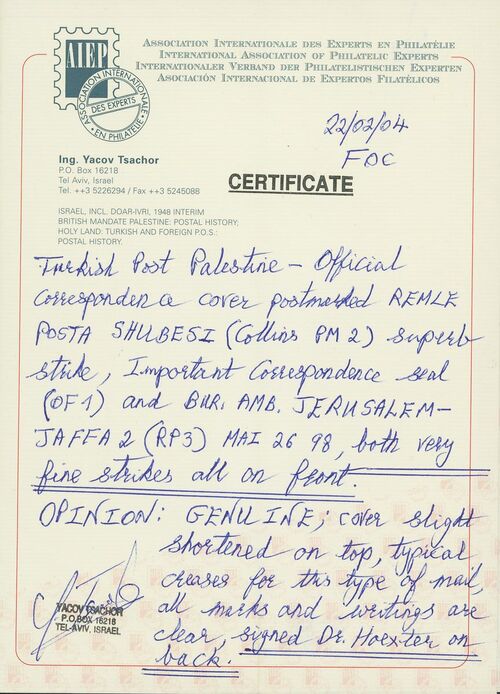 AIEP
ASSOCIATION INTERNATIONALE
DES EXPERTS
EN PHILATÉLIE
ASSOCIATION INTERNATIONALE DES EXPERTS EN PHILATÉLIE
INTERNATIONAL ASSOCIATION OF PHILATELIC EXPERTS
INTERNATIONALER VERBAND DER PHILATELISTISCHEN EXPERTEN
ASOCIACIÓN INTERNACIONAL DE EXPERTOS FILATÉLICOS
22/02/04
FDC
Ing. Yacov Tsachor
P.O. Box 16218
Tel Aviv, Israel
Tel. ++3 5226294 / Fax ++3 5245088
CERTIFICATE
ISRAEL, INCL. DOAR-IVRI, 1948 INTERIM
BRITISH MANDATE PALESTINE: POSTAL HISTORY;
HOLY LAND: TURKISH AND FOREIGN P.O.S.:
POSTAL HISTORY.
Turkish Post Palestine – Official
Correspondence cover postmarked REMLE
POSTA SHUBESI (Collins PM 2) superb
strike, Important Correspondence seal
(OF1) and BUR. AMB. JERUSALEM–
JAFFA 2 (RP3) MAI 26 98, both very
fine strikes all on front.
OPINION: GENUINE; cover slight
shortened on top, typical
creases for this type of mail,
all marks and writings are
clear, signed Dr. Hoexter on
back.
YACOV TSACHOR
P.O.BOX 16218
TEL-AVIV, ISRAEL